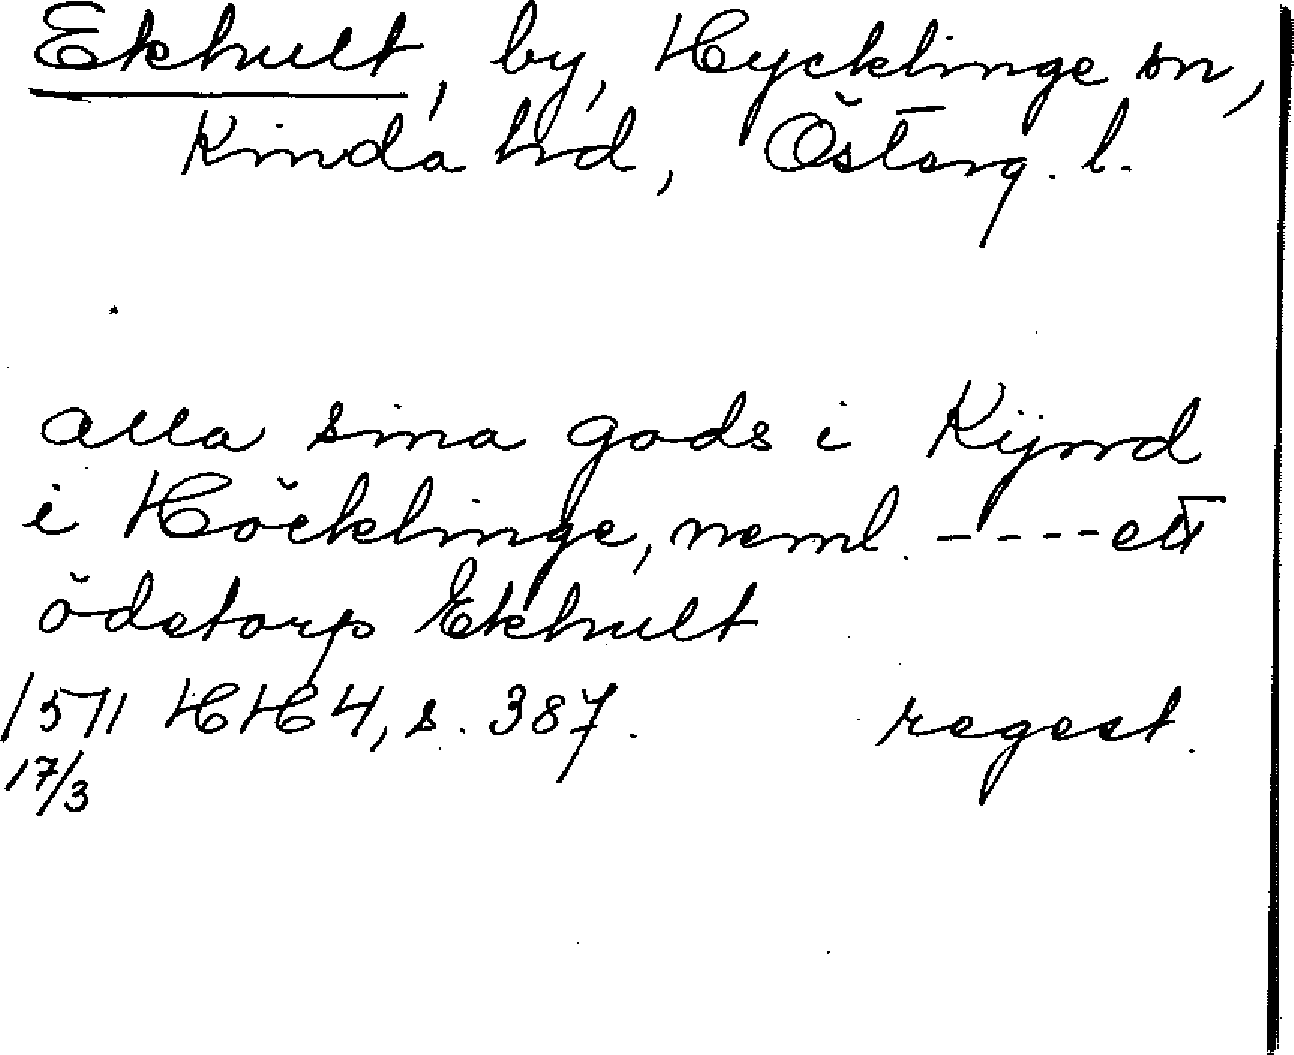 Ekhult, by, Hycklinge sn,
Kinda hd, Österg. l.
alla sina gods i Kijnd
i Höcklinge, neml. ---- ett
ödetorp Ekhult
1571 HH4, s. 387. regest.
17/3